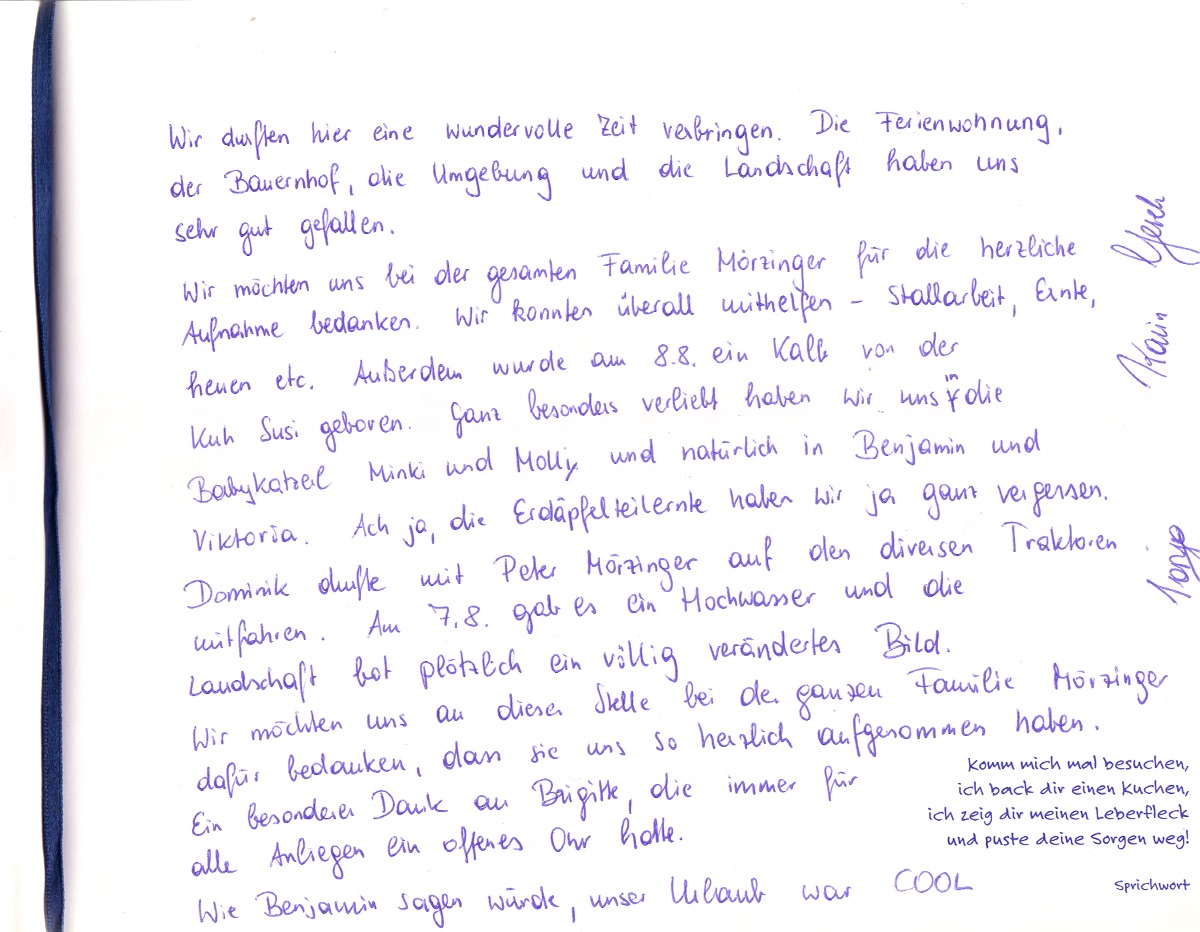 Wir durften hier eine wundervolle Zeit verbringen. Die Ferienwohnung,
der Bauernhof, die Umgebung und die Landschaft haben uns
sehr gut gefallen.
Wir möchten uns bei der gesamten Familie Mörzinger für die herzliche
Aufnahme bedanken. Wir konnten überall mithelfen – Stallarbeit, Ernte,
heuen etc. Außerdem wurde am 8.8. ein Kalb von der
Kuh Susi geboren. Ganz besonders verliebt haben wir uns in die
Babykatzerl Minki und Molly und natürlich in Benjamin und
Viktoria. Ach ja, die Erdäpfelteilernte haben wir ja ganz vergessen.
Dominik durfte mit Peter Mörzinger auf den diversen Traktoren
mitfahren. Am 7.8. gab es ein Hochwasser und die
Landschaft bot plötzlich ein völlig verändertes Bild.
Wir möchten uns an dieser Stelle bei der ganzen Familie Mörzinger
dafür bedanken, dass sie uns so herzlich aufgenommen haben.
Ein besonderer Dank an Brigitte, die immer für
alle Anliegen ein offenes Ohr hatte.
Wie Benjamin sagen würde, unser Urlaub war COOL
Komm mich mal besuchen,
ich back dir einen Kuchen,
ich zeig dir meinen Leberfleck
und puste deine Sorgen weg!
Sprichwort